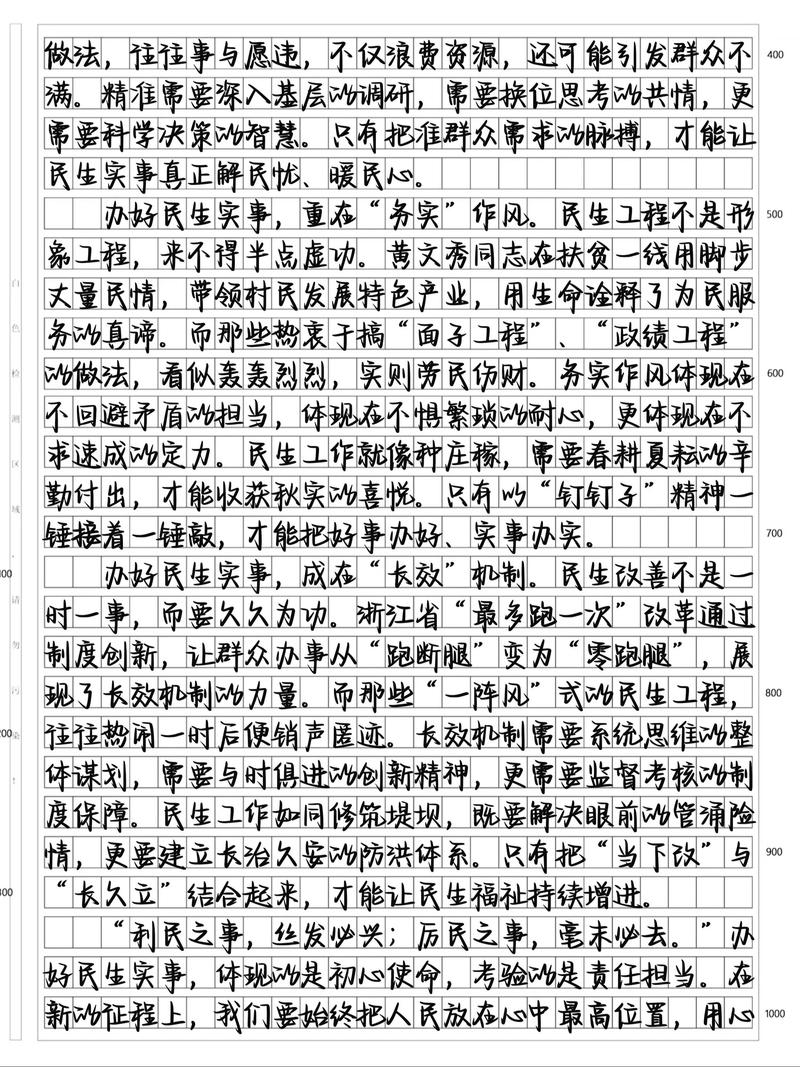 做法，往往事与愿违，不仅浪费资源，还可能引发群众不
满。精准需要深入基层的调研，需要换位思考的共情，更
需要科学决策的智慧。只有把准群众需求的脉搏，才能让
民生实事真正解民忧、暖民心。
办好民生实事，重在“务实”作风。民生工程不是形
象工程，来不得半点虚功。黄文秀同志在扶贫一线用脚步
丈量民情，带领村民发展特色产业，用生命诠释了为民服
务的真谛。而那些热衷于搞“面子工程”、“政绩工程”
的做法，看似轰轰烈烈，实则劳民伤财。务实作风体现在
不回避矛盾的担当，体现在不惧繁琐的耐心，更体现在不
求速成的定力。民生工作就像种庄稼，需要春耕夏耘的辛
勤付出，才能收获秋实的喜悦。只有以“钉钉子”精神一
锤接着一锤敲，才能把好事办好、实事办实。
办好民生实事，成在“长效”机制。民生改善不是一
时一事，而要久久为功。浙江省“最多跑一次”改革通过
制度创新，让群众办事从“跑断腿”变为“零跑腿”，展
现了长效机制的力量。而那些“一阵风”式的民生工程，
往往热闹一时后便销声匿迹。长效机制需要系统思维的整
体谋划，需要与时俱进的创新精神，更需要监督考核的制
度保障。民生工作如同修筑堤坝，既要解决眼前的管涌险
情，更要建立长治久安的防洪体系。只有把“当下改”与
“长久立”结合起来，才能让民生福祉持续增进。
“利民之事，丝发必兴；厉民之事，毫末必去。”办
好民生实事，体现的是初心使命，考验的是责任担当。在
新的征程上，我们要始终把人民放在心中最高位置，用心
400
500
600
700
800
900
1000
100
200
300
白色检测区域，请勿污染！